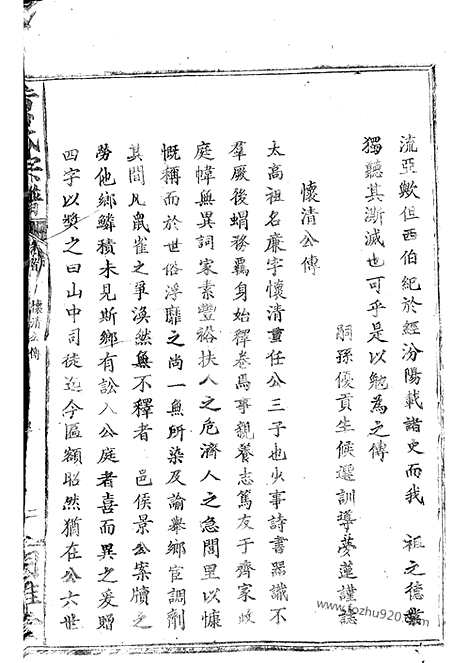 流亞歟但西伯紀於經汾陽載諸史而我 祖之德業
獨聽其澌滅也可乎是以勉為之傳
嗣孫優貢生候選訓導夢蓮謹誌
懷清公傳
太高祖名廉字懷清重任公三子也少事詩書器識不
羣厥後蝟務羈身始釋卷焉事親養志篤友于齊家政
庭幃無異詞家素豐裕扶人之危濟人之急閭里以慷
慨稱而於世俗浮靡之尚一無所染及諭舉鄉官調劑
其間凡鼠雀之爭渙然無不釋者 邑侯景公案牘之
勞他鄉鱗積未見斯鄉有訟入公庭者喜而異之爰贈
四字以獎之曰山中司徒迄今區額昭然猶在公六世
氏宗譜
懷清公傳
二
www.fozhu920.com